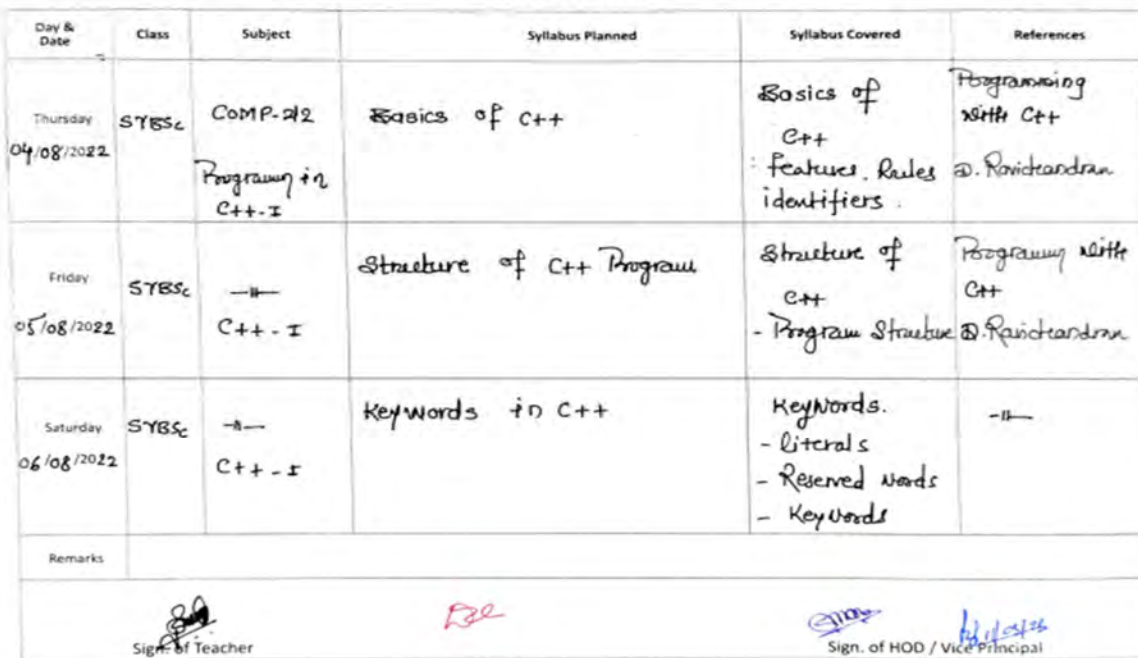 Day & Date Class Subject Syllabus Planned Syllabus Covered References
Thursday
04/08/2022
SYBSc
COMP-212
Programing in
C++-I
Basics of C++
Basics of
C++
: features. Rules
identifiers.
Programming
with C++
D. Ravichandran
Friday
05/08/2022
SYBSc
—॥—
C++-I
Structure of C++ Program
Structure of
C++
- Program Structure
Programing with
C++
D. Ravichandran
Saturday
06/08/2022
SYBSc
—॥—
C++-I
Keywords in C++
Keywords.
- literals
- Reserved words
- Keywords
—॥—
Remarks
Sign. of Teacher
Sign. of HOD / Vice Principal